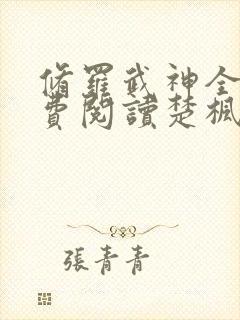 脩羅武神全
費閱讀楚楓
張青青